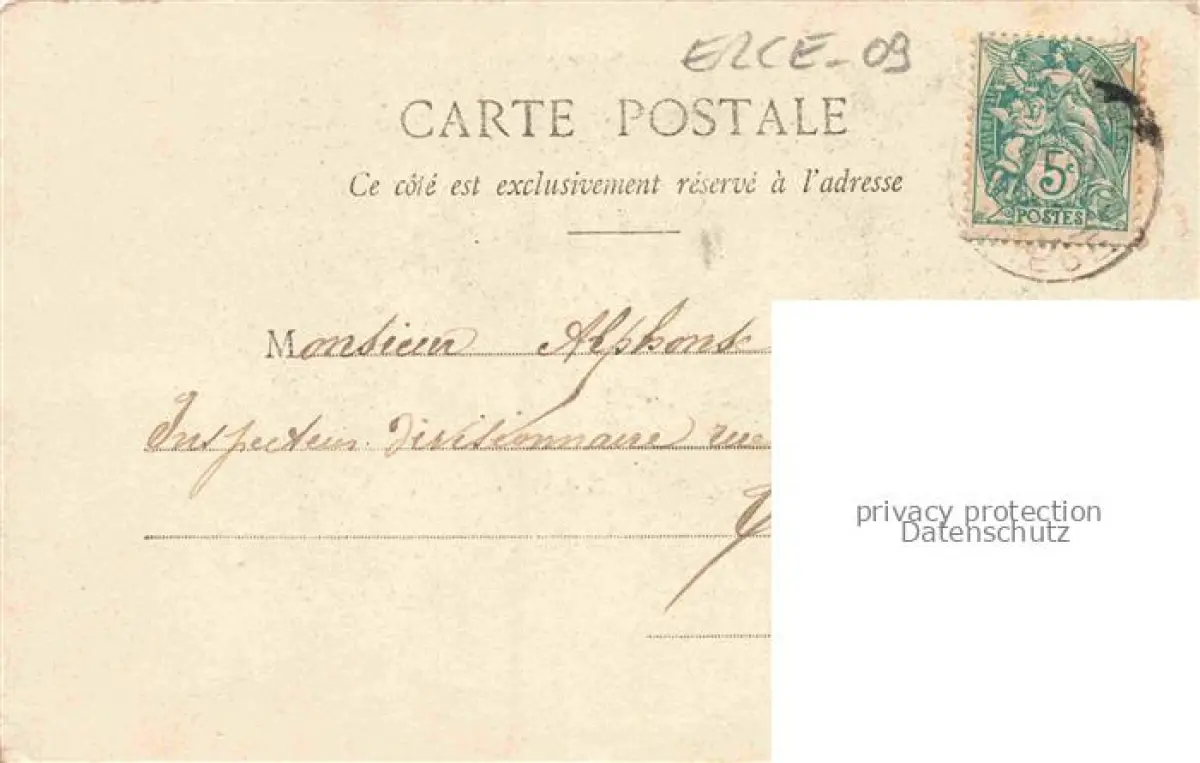 ERCE-09
CARTE POSTALE
Ce côté est exclusivement réservé à l'adresse
5c
POSTES
Monsieur Alphonse
Inspecteur divisionnaire rue
privacy protection
Datenschutz